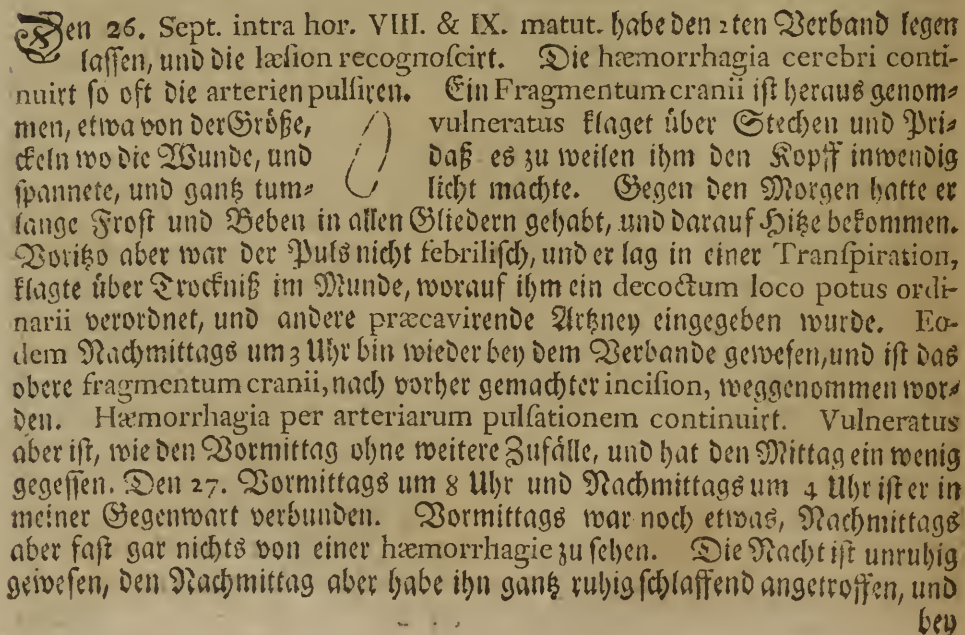 Den 26. Sept. intra hor. VIII. & IX. matut. habe den 2ten Verband legen
laſſen, und die læſion recognoſcirt. Die hæmorrhagia cerebri conti-
nuirt ſo oft die arterien pulſiren. Ein Fragmentum cranii iſt heraus genom-
men, etwa von der Größe, vulneratus klaget über Stechen und Pri-
ckeln wo die Wunde, und daß es zu weilen ihm den Kopff inwendig
ſpannete, und gantz tum- licht machte. Gegen den Morgen hatte er
lange Froſt und Beben in allen Gliedern gehabt, und darauf Hitze bekommen.
Voritzo aber war der Puls nicht febriliſch, und er lag in einer Tranſpiration,
klagte über Trockniß im Munde, worauf ihm ein decoctum loco potus ordi-
narii verordnet, und andere præcavirende Artzney eingegeben wurde. Eo-
dem Nachmittags um 3 Uhr bin wieder bey dem Verbande geweſen, und iſt das
obere fragmentum cranii, nach vorher gemachter inciſion, weggenommen wor-
den. Hæmorrhagia per arteriarum pulſationem continuirt. Vulneratus
aber iſt, wie den Vormittag ohne weitere Zufälle, und hat den Mittag ein wenig
gegeſſen. Den 27. Vormittags um 8 Uhr und Nachmittags um 4 Uhr iſt er in
meiner Gegenwart verbunden. Vormittags war noch etwas, Nachmittags
aber faſt gar nichts von einer hæmorrhagie zu ſehen. Die Nacht iſt unruhig
geweſen, den Nachmittag aber habe ihn gantz ruhig ſchlaffend angetroffen, und
bey